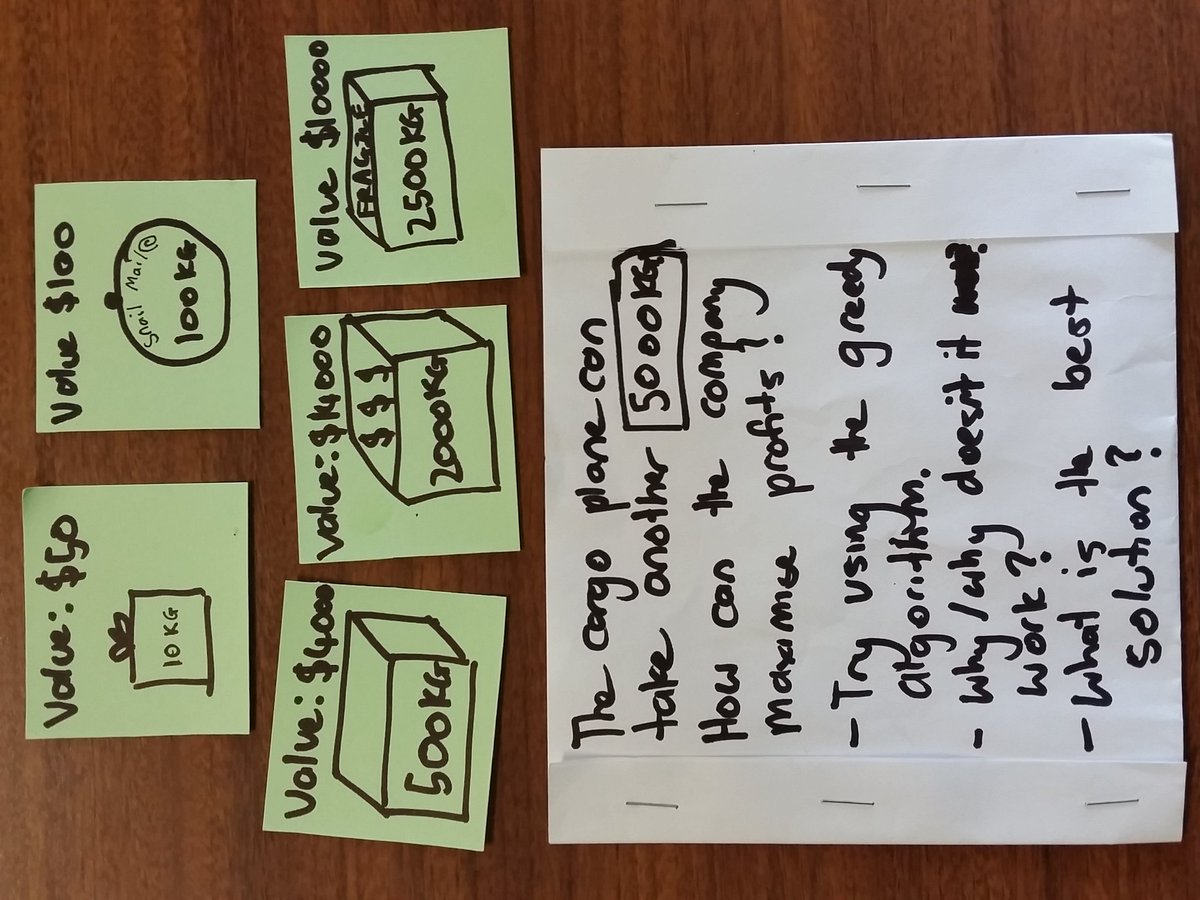 Value: $50
10KG
Value $100
Snail Mail
100KG
Value: $4000
500KG
Value: $14000
$ $ $
2000KG
Value $10000
FRAGILE
2500KG
The cargo plane can
take another 5000KG
How can the company
maximise profits?
- Try using the greedy
algorithm.
- Why/why doesn't it
work?
- What is the best
solution?